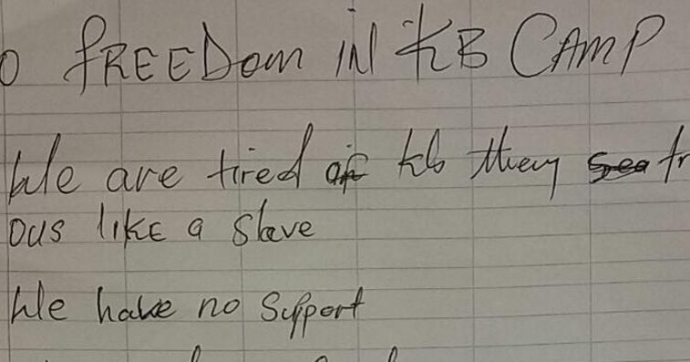 O FREEDom IN KB CAMP
We are tired of kb they tr
ous like a slave
We have no Support